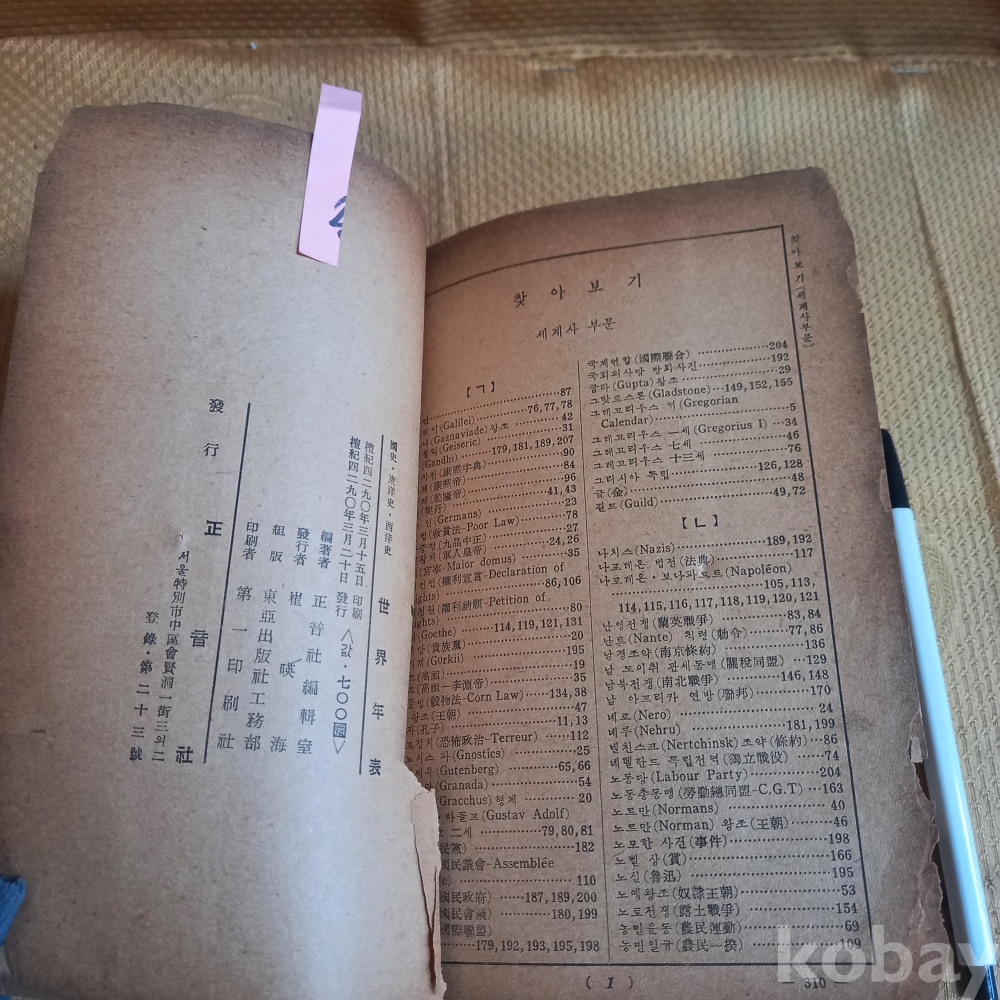 國史·東洋史·西洋史
世界年表
檀紀四二九〇年三月十五日 印刷
檀紀四二九〇年三月二十日 發行 〈값·七〇〇圜〉
編著者 正音社編輯室
發行者 崔暎海
組版 東亞出版社工務部
印刷者 第一印刷社
發行 正音社
서울特別市中區會賢洞一街三의二
登錄·第二十三號
찾아보기
세계사 부문
【ㄱ】
87
(Galilei) 76,77,78
(Gaznaviade)왕조 42
(Geiseric) 31
(Gandhi) 179,181,189,207
(康熙字典) 90
(康熙帝) 84
(乾隆帝) 96
(契丹) 41,43
(Germans) 23
(救貧法-Poor Law) 78
(九品中正) 27
(軍人皇帝) 24,26
(宮宰-Maior domus) 35
(權利宣言-Declaration of
86,106
(權利請願-Petition of
80
(Goethe) 114,119,121,131
(貴族黨) 20
(Gorkii) 195
(高祖) 19
(高祖-李淵帝) 35
(穀物法-Corn Law) 134,38
왕조(王朝) 47
(孔子) 11,13
정치(恐怖政治-Terreur) 112
노시스 파(Gnostics) 25
(Gutenberg) 65,66
(Granada) 54
Gracchus)형제 20
아돌프(Gustav Adolf)
二세 79,80,81
民黨) 182
國民議會-Assemblée
110
國民政府) 187,189,200
國民會議) 180,199
國際聯盟
179,192,193,195,198
국제연합(國際聯合) 204
국회의사당 방화사건 192
굽타(Gupta)왕조 29
그랏드스톤(Gladstone) 149,152,155
그레고리우스 력(Gregorian
Calendar) 5
그레고리우스 一세(Gregorius I) 34
그레고리우스 七세 46
그레고리우스 十三세
그리시아 독립 126,128
금(金) 48
길드(Guild) 49,72
【ㄴ】
나치스(Nazis) 189,192
나포레온 법전(法典) 117
나포레온·보나파르트(Napoléon)
105,113,
114,115,116,117,118,119,120,121
난영전쟁(蘭英戰爭) 83,84
난트(Nante) 칙령(勅令) 77,86
남경조약(南京條約) 136
남 도이취 관세동맹(關稅同盟) 129
남북전쟁(南北戰爭) 146,148
남 아프리카 연방(聯邦) 170
네로(Nero) 24
네루(Nehru) 181,199
넬친스크(Nertchinsk)조약(條約) 86
네델란드 독립전역(獨立戰役) 74
노동당(Labour Party) 204
노동총동맹(勞動總同盟-C.G.T) 163
노르만(Normans) 40
노르만(Norman) 왕조(王朝) 46
노모한 사건(事件) 198
노벨 상(賞) 166
노신(魯迅) 195
노예왕조(奴隷王朝) 53
노토전쟁(露土戰爭) 154
농민운동(農民運動) 69
농민일규(農民一揆) 109
찾아보기(세계사부문)
( 1 )
310
kobay